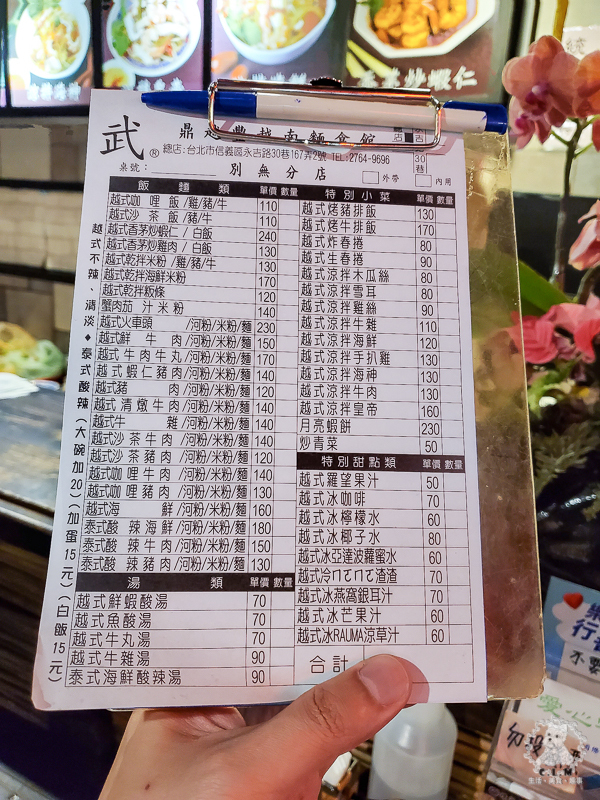 炒蝦仁
武® 鼎 越南麵食館
總店:台北市信義區永吉路30巷167弄2號 TEL:2764-9696
桌號: 別無分店 外帶 內用
飯 麵 類 單價 數量
越式咖哩飯/雞/豬/牛 110
越式沙茶飯/豬/牛 110
越式香茅炒蝦仁/白飯 240
越式香茅炒雞肉/白飯 130
越式乾拌米粉/雞/豬/牛 130
越式乾拌海鮮米粉 170
越式乾拌粄條 120
蟹肉茄汁米粉 140
越式火車頭 /河粉/米粉/麵 230
越式鮮牛肉/河粉/米粉/麵 150
越式牛肉牛丸/河粉/米粉/麵 170
越式蝦仁豬肉/河粉/米粉/麵 140
越式豬肉/河粉/米粉/麵 120
越式清燉牛肉/河粉/米粉/麵 140
越式牛雜/河粉/米粉/麵 140
越式沙茶牛肉/河粉/米粉/麵 140
越式沙茶豬肉/河粉/米粉/麵 120
越式咖哩牛肉/河粉/米粉/麵 140
越式咖哩豬肉/河粉/米粉/麵 130
越式海鮮/河粉/米粉/麵 160
泰式酸辣海鮮/河粉/米粉/麵 180
泰式酸辣牛肉/河粉/米粉/麵 150
泰式酸辣豬肉/河粉/米粉/麵 130
湯 類 單價 數量
越式鮮蝦酸湯 70
越式魚酸湯 70
越式牛丸湯 70
越式牛雜湯 90
泰式海鮮酸辣湯 90
特別小菜 單價 數量
越式烤豬排飯 130
越式烤牛排飯 170
越式炸春捲 80
越式生春捲 90
越式涼拌木瓜絲 80
越式涼拌雪耳 80
越式涼拌雞絲 90
越式涼拌牛雜 110
越式涼拌海鮮 120
越式涼拌手扒雞 130
越式涼拌海神 130
越式涼拌牛肉 130
越式涼拌皇帝 160
月亮蝦餅 230
炒青菜 50
特別甜點類 單價 數量
越式羅望果汁 50
越式冰咖啡 70
越式冰檸檬水 60
越式冰椰子水 80
越式冰亞達波蘿蜜水 60
越式冷ㄇㄛㄇㄛ渣渣 70
越式冰燕窩銀耳汁 70
越式冰芒果汁 60
越式冰RAUMA涼草汁 60
合計
越式不辣、清淡◆泰式酸辣(大碗加20)(加蛋15元)(白飯15元)
行
不要
愛心
C.L.M.
生活、美食、故事